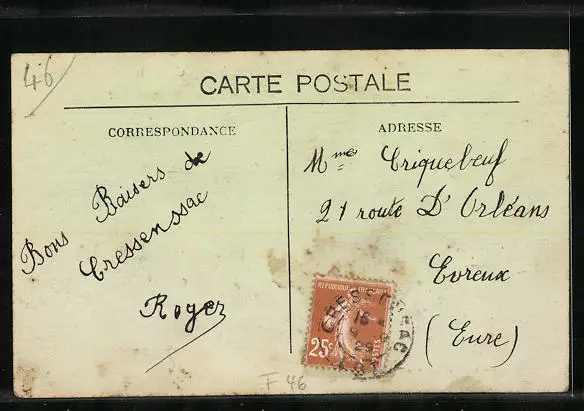 46
CARTE POSTALE
CORRESPONDANCE
Bons Baisers de
Cressenssac
Roger
ADRESSE
Mme Criquebeuf
21 route D'Orléans
Evreux
(Eure)
REPUBLIQUE FRANÇAISE
25c POSTES
CRESSENSAC
F 46